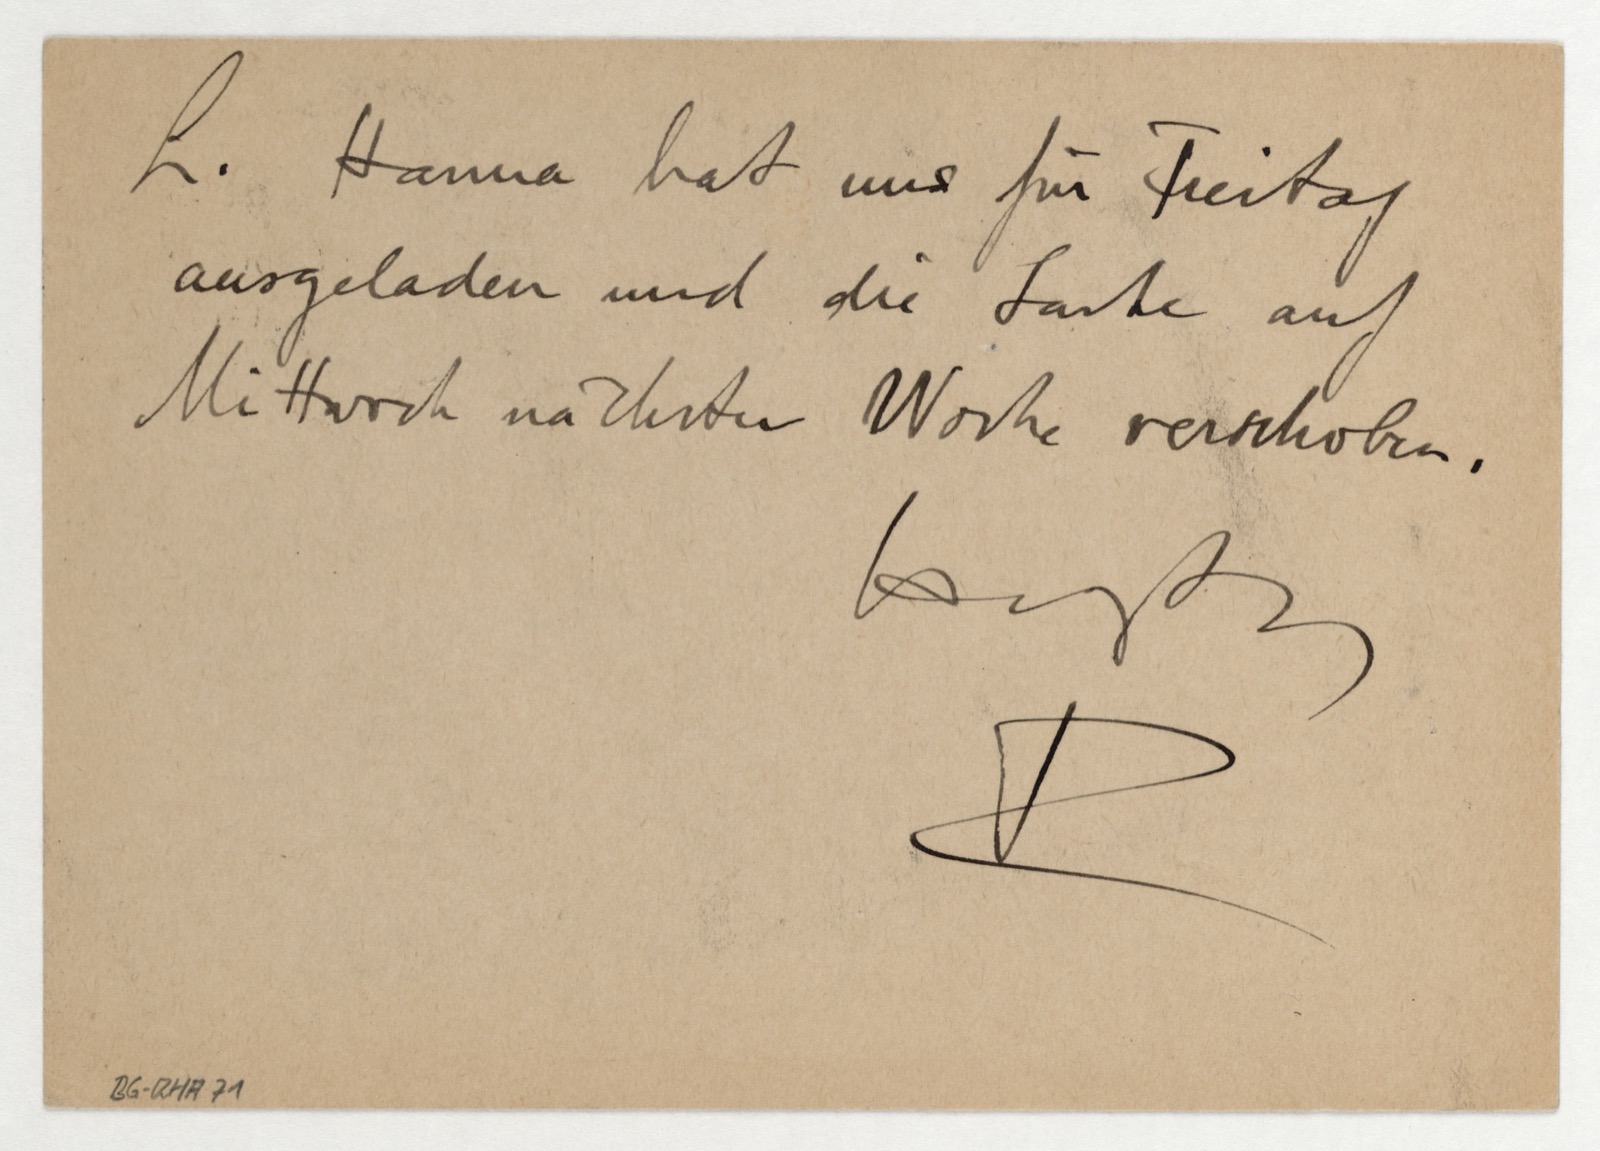 L. Hanna hat uns für Freitag
ausgeladen und die Sache auf
Mittwoch nächster Woche verschoben.
Herzlich
R
BG-RHA 71